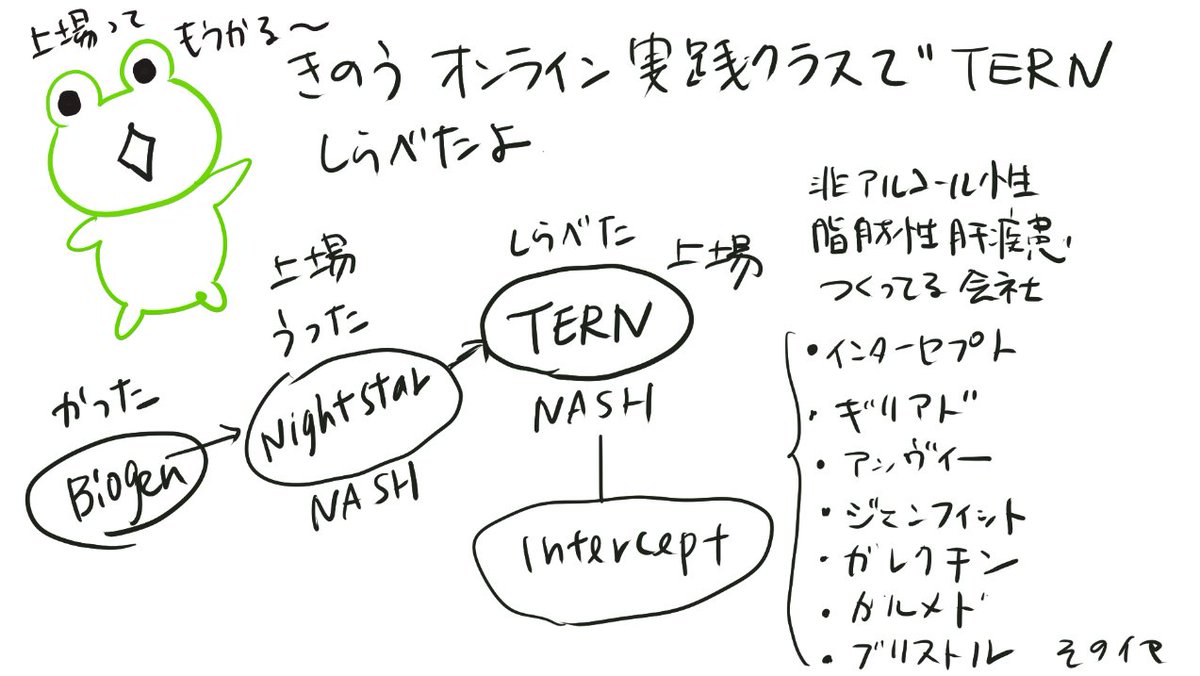 上場って もうかる〜
きのう オンライン 実践クラスで TERN
しらべたよ
非アルコール性
脂肪性肝疾患
つくってる 会社
しらべた
上場
TERN
NASH
上場
うった
Nightstar
NASH
かった
Biogen
Intercept
・インターセプト
・ギリアド
・アッヴィー
・ジェンフィット
・ガレクチン
・ガルメド
・ブリストル その他